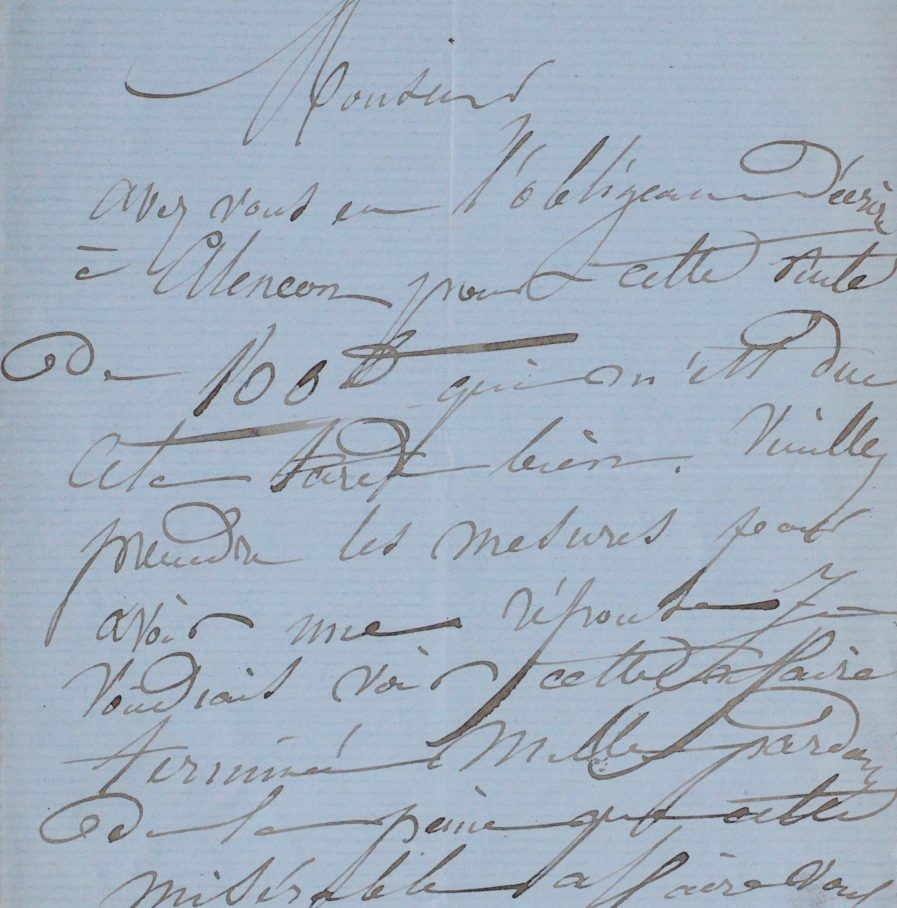 Monsieur
avez vous eu l'obligeance d'écrire
à Alencon pour cette rente
de 100 qui m'est due
cela tarde bien. Veuillez
prendre les mesures pour
avoir une réponse Je
voudrais voir cette affaire
terminée Mille pardons
de la peine que cette
misérable affaire vous